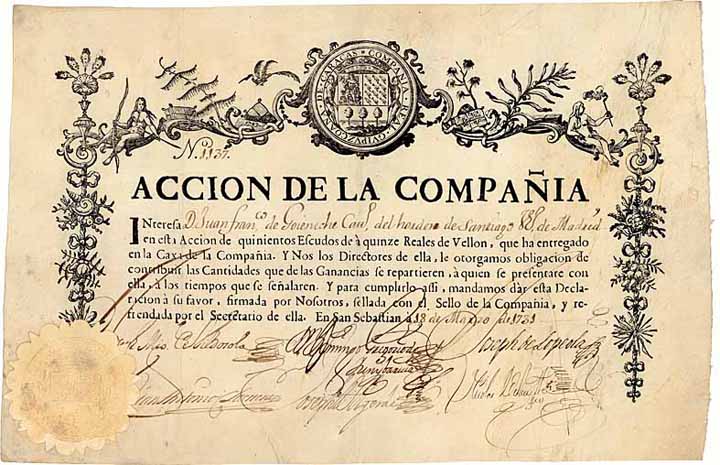 COMPAÑIA REAL GVIPVZCOANA DE CARACAS
N. 1137.
ACCION DE LA COMPAÑIA
INteresa D. Juan Fran.co de Goieneche Cau.o del horden de Santiago V.o de Madrid
en esta Accion de quinientos Escudos de à quinze Reales de Vellon, que ha entregado
en la Caxa de la Compañia. Y Nos los Directores de ella, le otorgamos obligacion de
contribuir las Cantidades que de las Ganancias se repartieren, à quien se presentare con
ella, à los tiempos que se señalaren. Y para cumplirlo assi, mandamos dàr esta Decla-
racion à su favor, firmada por Nosotros, sellada con el Sello de la Compañia, y re-
frendada por el Secretario de ella. En San Sebastian à 18 de Marzo de 1731
Domingo Gregorio de
Yunybarvia
Joseph de Lopeola